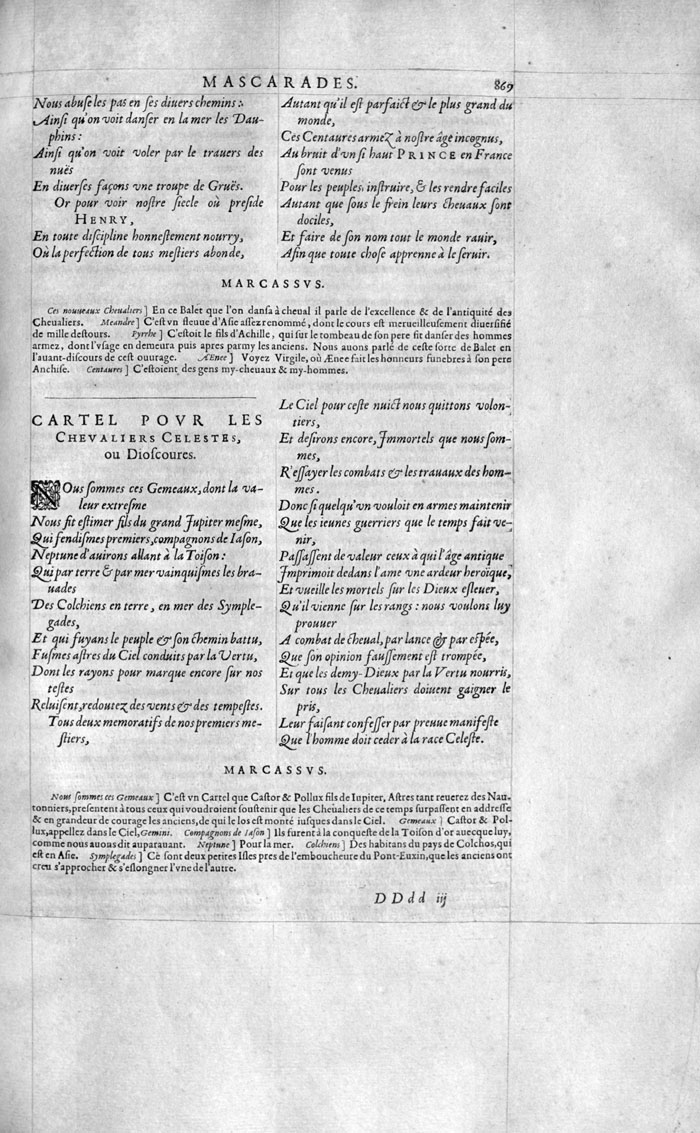 MASCARADES. 869
Nous abuse les pas en ses diuers chemins:
Ainsi qu'on voit danser en la mer les Dau-
phins:
Ainsi qu'on voit voler par le trauers des
nuës
En diuerses façons vne troupe de Gruës.
Or pour voir nostre siecle où preside
HENRY,
En toute discipline honnestement nourry,
Où la perfection de tous mestiers abonde,
Autant qu'il est parfaict & le plus grand du
monde,
Ces Centaures armez à nostre âge incognus,
Au bruit d'vn si haut PRINCE en France
sont venus
Pour les peuples instruire, & les rendre faciles
Autant que sous le frein leurs cheuaux sont
dociles,
Et faire de son nom tout le monde rauir,
Afin que toute chose apprenne à le seruir.
MARCASSVS.
Ces nouueaux Cheualiers] En ce Balet que l'on dansa à cheual il parle de l'excellence & de l'antiquité des
Cheualiers. Meandre] C'est vn fleuue d'Asie assez renommé, dont le cours est merueilleusement diuersifié
de mille destours. Pyrrhe] C'estoit le fils d'Achille, qui sur le tombeau de son pere fit danser des hommes
armez, dont l'vsage en demeura puis apres parmy les anciens. Nous auons parlé de ceste sorte de Balet en
l'auant-discours de cest ouurage. Æenee] Voyez Virgile, où Ænee fait les honneurs funebres à son pere
Anchise. Centaures] C'estoient des gens my-cheuaux & my-hommes.
CARTEL POVR LES
CHEVALIERS CELESTES,
ou Dioscoures.
NOus sommes ces Gemeaux, dont la va-
leur extresme
Nous fit estimer fils du grand Jupiter mesme,
Qui fendismes premiers, compagnons de Iason,
Neptune d'auirons allant à la Toison:
Qui par terre & par mer vainquismes les bra-
uades
Des Colchiens en terre, en mer des Symple-
gades,
Et qui fuyans le peuple & son chemin battu,
Fusmes astres du Ciel conduits par la Vertu,
Dont les rayons pour marque encore sur nos
testes
Reluisent, redoutez des vents & des tempestes.
Tous deux memoratifs de nos premiers me-
stiers,
Le Ciel pour ceste nuict nous quittons volon-
tiers,
Et desirons encore, Jmmortels que nous som-
mes,
R'essayer les combats & les trauaux des hom-
mes.
Donc si quelqu'vn vouloit en armes maintenir
Que les ieunes guerriers que le temps fait ve-
nir,
Passassent de valeur ceux à qui l'âge antique
Jmprimoit dedans l'ame vne ardeur heroïque,
Et vueille les mortels sur les Dieux esleuer,
Qu'il vienne sur les rangs: nous voulons luy
prouuer
A combat de cheual, par lance & par espée,
Que son opinion faussement est trompée,
Et que les demy-Dieux par la Vertu nourris,
Sur tous les Cheualiers doiuent gaigner le
pris,
Leur faisant confesser par preuue manifeste
Que l'homme doit ceder à la race Celeste.
MARCASSVS.
Nous sommes ces Gemeaux] C'est vn Cartel que Castor & Pollux fils de Iupiter, Astres tant reuerez des Nau-
tonniers, presentent à tous ceux qui voudroient soustenir que les Cheualiers de ce temps surpassent en addresse
& en grandeur de courage les anciens, de qui le los est monté iusques dans le Ciel. Gemeaux] Castor & Pol-
lux, appellez dans le Ciel, Gemini. Compagnons de Iason] Ils furent à la conqueste de la Toison d'or auecque luy,
comme nous auons dit auparauant. Neptune] Pour la mer. Colchiens] Des habitans du pays de Colchos, qui
est en Asie. Symplegades] Ce sont deux petites Isles pres de l'emboucheure du Pont-Euxin, que les anciens ont
creu s'approcher & s'eslongner l'vne de l'autre.
DDdd iij